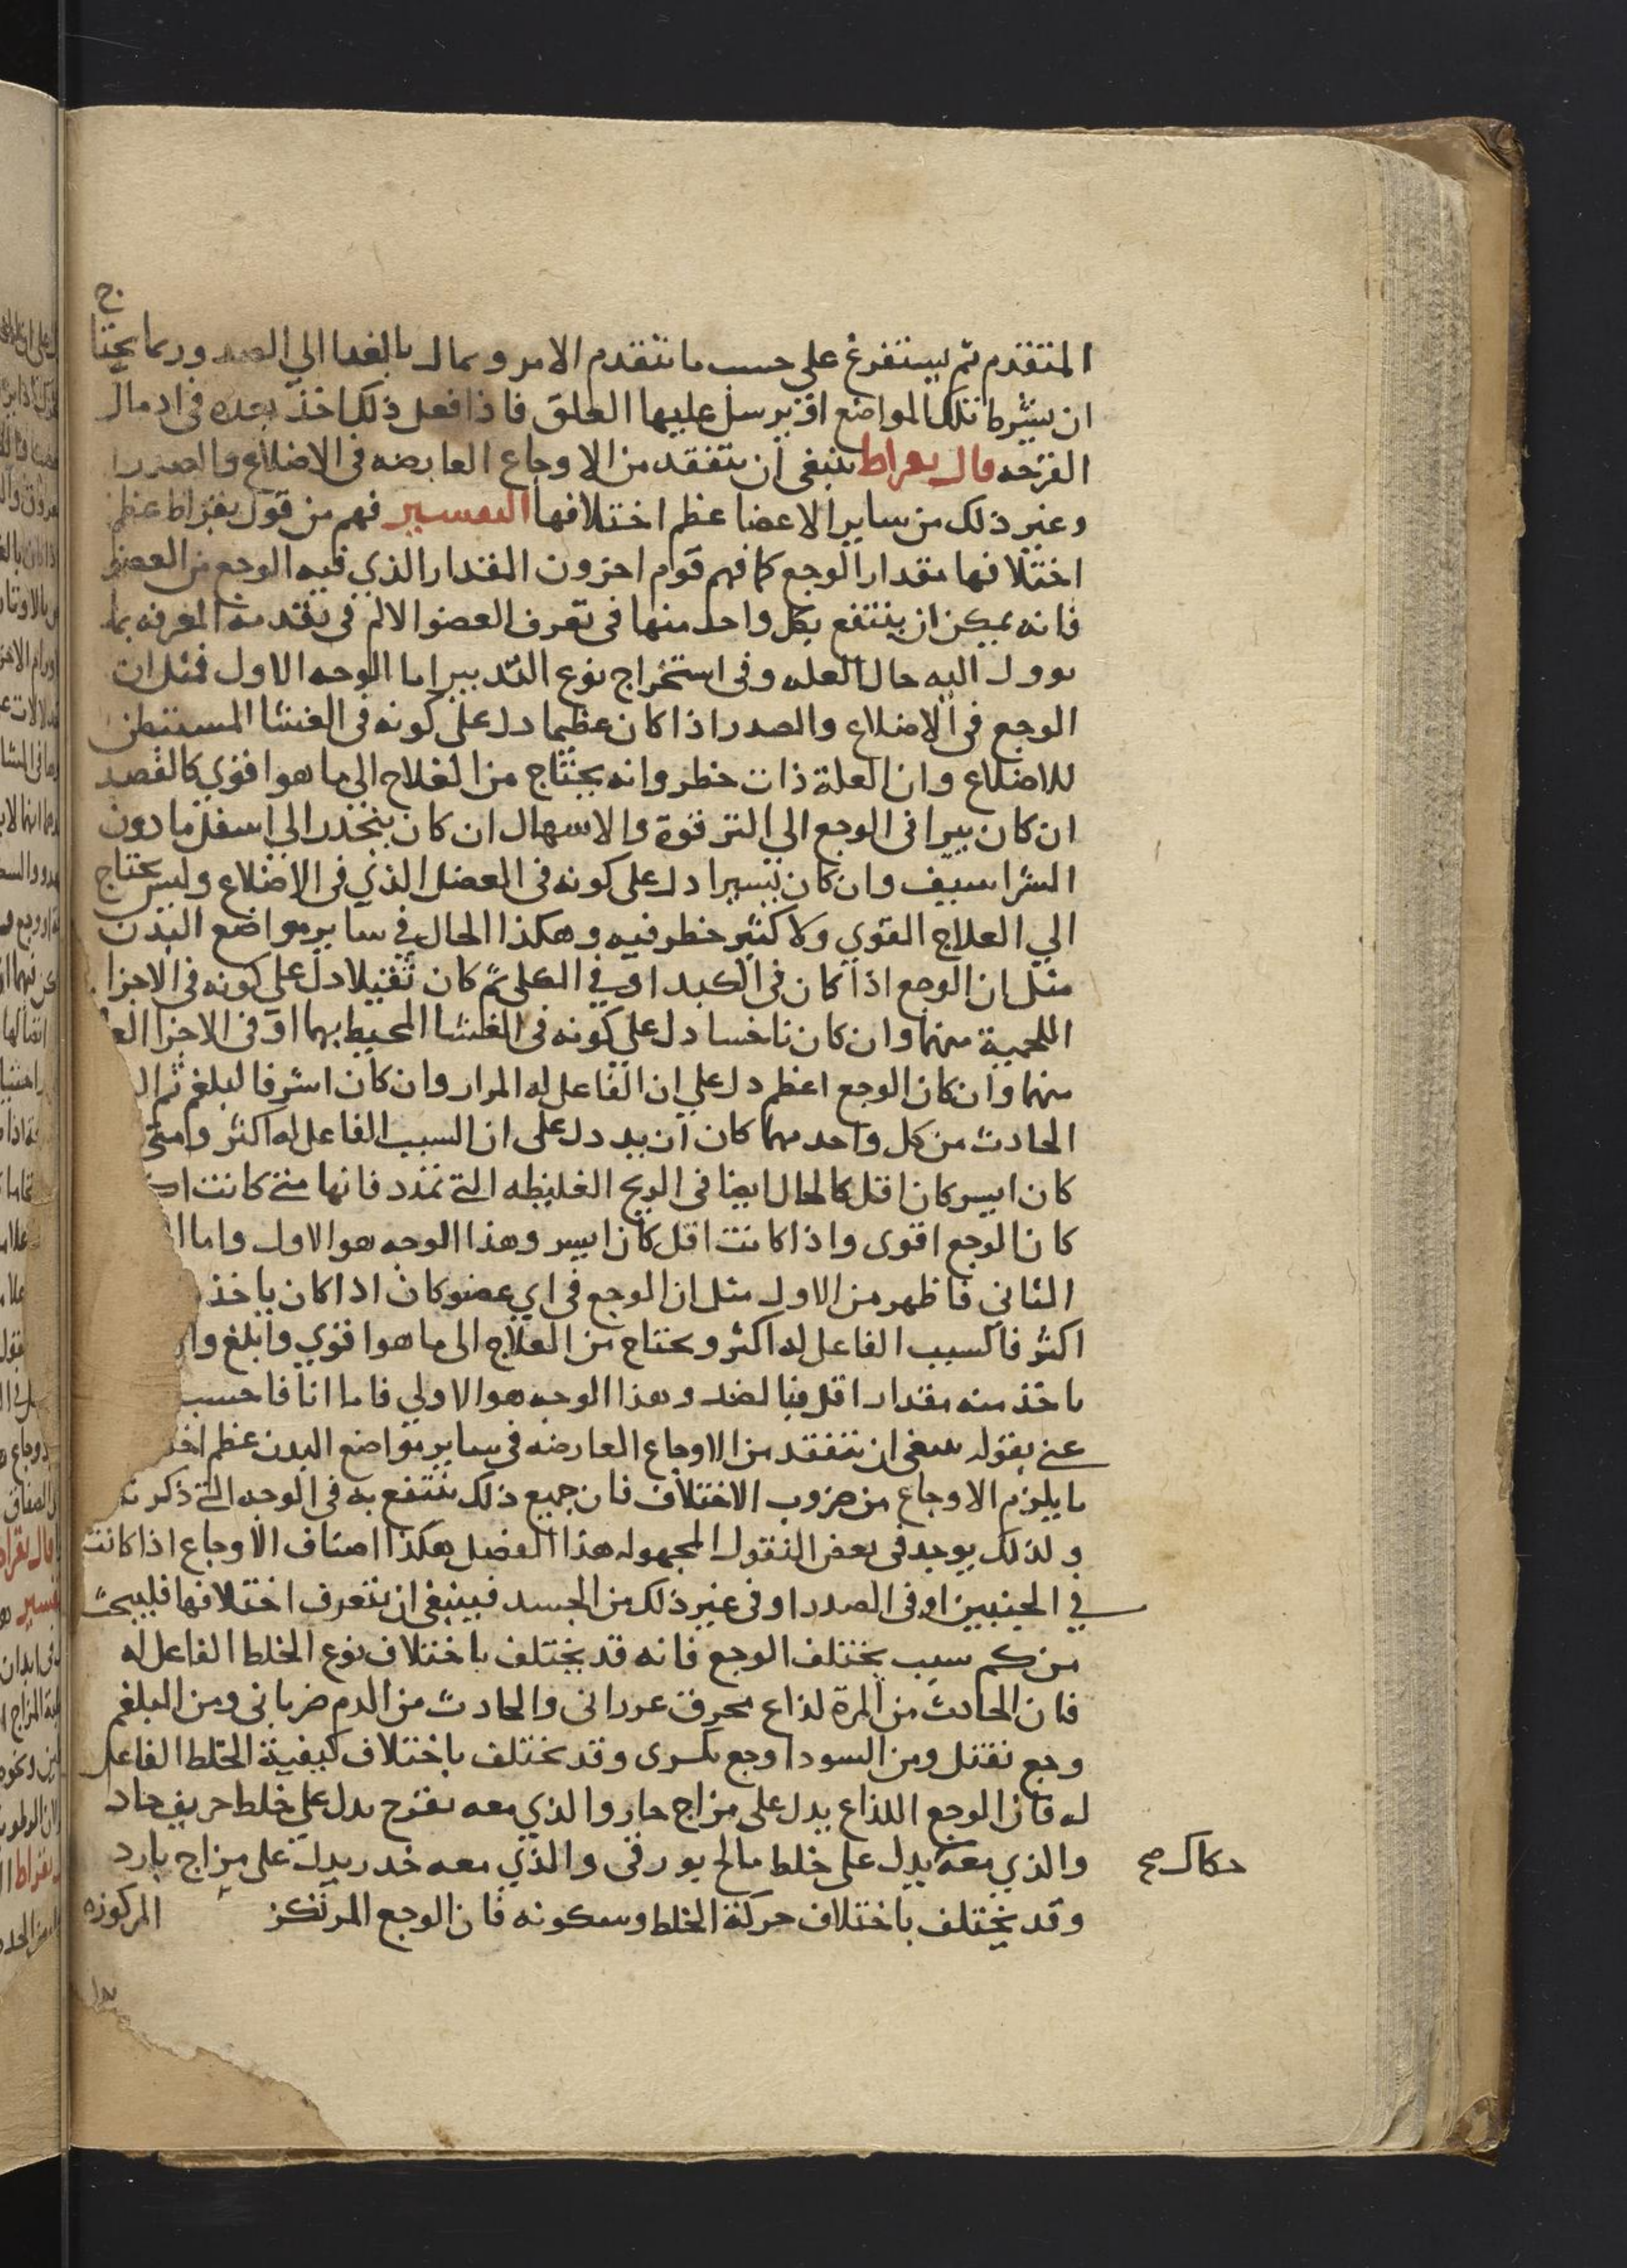 المتقدم ثم يستفرغ على حسب ما تتقدم الامر ويمال بالغدا الي الضد وربما يحتاج
ان يشرط تلك المواضع او يرسل عليها العلق فاذا فعل ذلك اخذ بعده في ادمال
القرحه قال بقراط ينبغي ان يتفقد من الاوجاع العارضه في الاضلاع والصدر
وغير ذلك من ساير الاعضا عظم اختلافها التفسير فهم من قول بقراط عظم
اختلافها مقدار الوجع كما فهم قوم اخرون المقدار الذي فيه الوجع من العضو
فانه يمكن ان ينتفع بكل واحد منها في تعرف العضو الالم في تقدمة المعرفه بما
يوول اليه حال العله وفي استخراج نوع التدبير اما الوجه الاول فمثل ان
الوجع في الاضلاع والصدر اذا كان عظيما دل على كونه في الغشا المستبطن
للاضلاع وان العلة ذات خطر وانه يحتاج من العلاج الي ما هو اقوي كالفصد
ان كان يراقى الوجع الي الترقوة والاسهال ان كان ينحدر الي اسفل ما دون
الشراسيف وان كان يسيرا دل على كونه في العضل الذي في الاضلاع وليس يحتاج
الي العلاج القوي ولا كثير خطر فيه وهكذا الحال في ساير مواضع البدن
مثل ان الوجع اذا كان في الكبد او في الكلى ثم كان ثقيلا دل على كونه في الاجزا
اللحمية منهما وان كان ناخسا دل علي كونه في الغشا المحيط بهما او في الاجزا
منهما وان كان الوجع اعظم دل علي ان الفاعل له المرار وان كان اشر فالبلغم ثم
الحادث من كل واحد منهما كان ازيد دل على ان السبب الفاعل له اكثر ومتى
كان ايسر كان اقل كالحال ايضا في الريح الغليظه التي تمدد فانها متى كانت
كان الوجع اقوى واذا كانت اقل كان ايسر وهذا الوجه هو الاول واما
الثاني فاظهر من الاول مثل ان الوجع في اي عضو كان اذا كان ياخذ
اكثر فالسبب الفاعل له اكثر ويحتاج من العلاج الى ما هو اقوي وابلغ
ياخذ منه مقدار اقل فبالضد وهذا الوجه هو الاولي فاما انا فاحسب
عنى بقوله ينبغي ان يتفقد من الاوجاع العارضه في ساير مواضع البدن عظم
ما يلزم الاوجاع من ضروب الاختلاف فان جميع ذلك ينتفع به في الوجه التي
ولذلك يوجد في بعض النقول المجهوله هذا الفصل هكذا اصناف الاوجاع اذا كانت
في الجنبين او في الصدر او في غير ذلك من الجسد فينبغي ان تتعرف اختلافها فليبحث
من كم سبب يختلف الوجع فانه قد يختلف باختلاف نوع الخلط الفاعل له
فان الحادث من المرة لذاع محرق والحادث من الدم ضرباني ومن البلغم
وجع ثقيل ومن السودا وجع وقد يختلف باختلاف كيفية الخلط الفاعل
له فان الوجع اللذاع يدل على مزاج حار والذي معه تقرح يدل علي خلط حريف حاد
والذي معه يدل على خلط مالح بورقي والذي معه خدر يدل على مزاج بارد
حكاك صح
وقد يختلف باختلاف حركة الخلط وسكونه فان الوجع المرتكز المركوزه